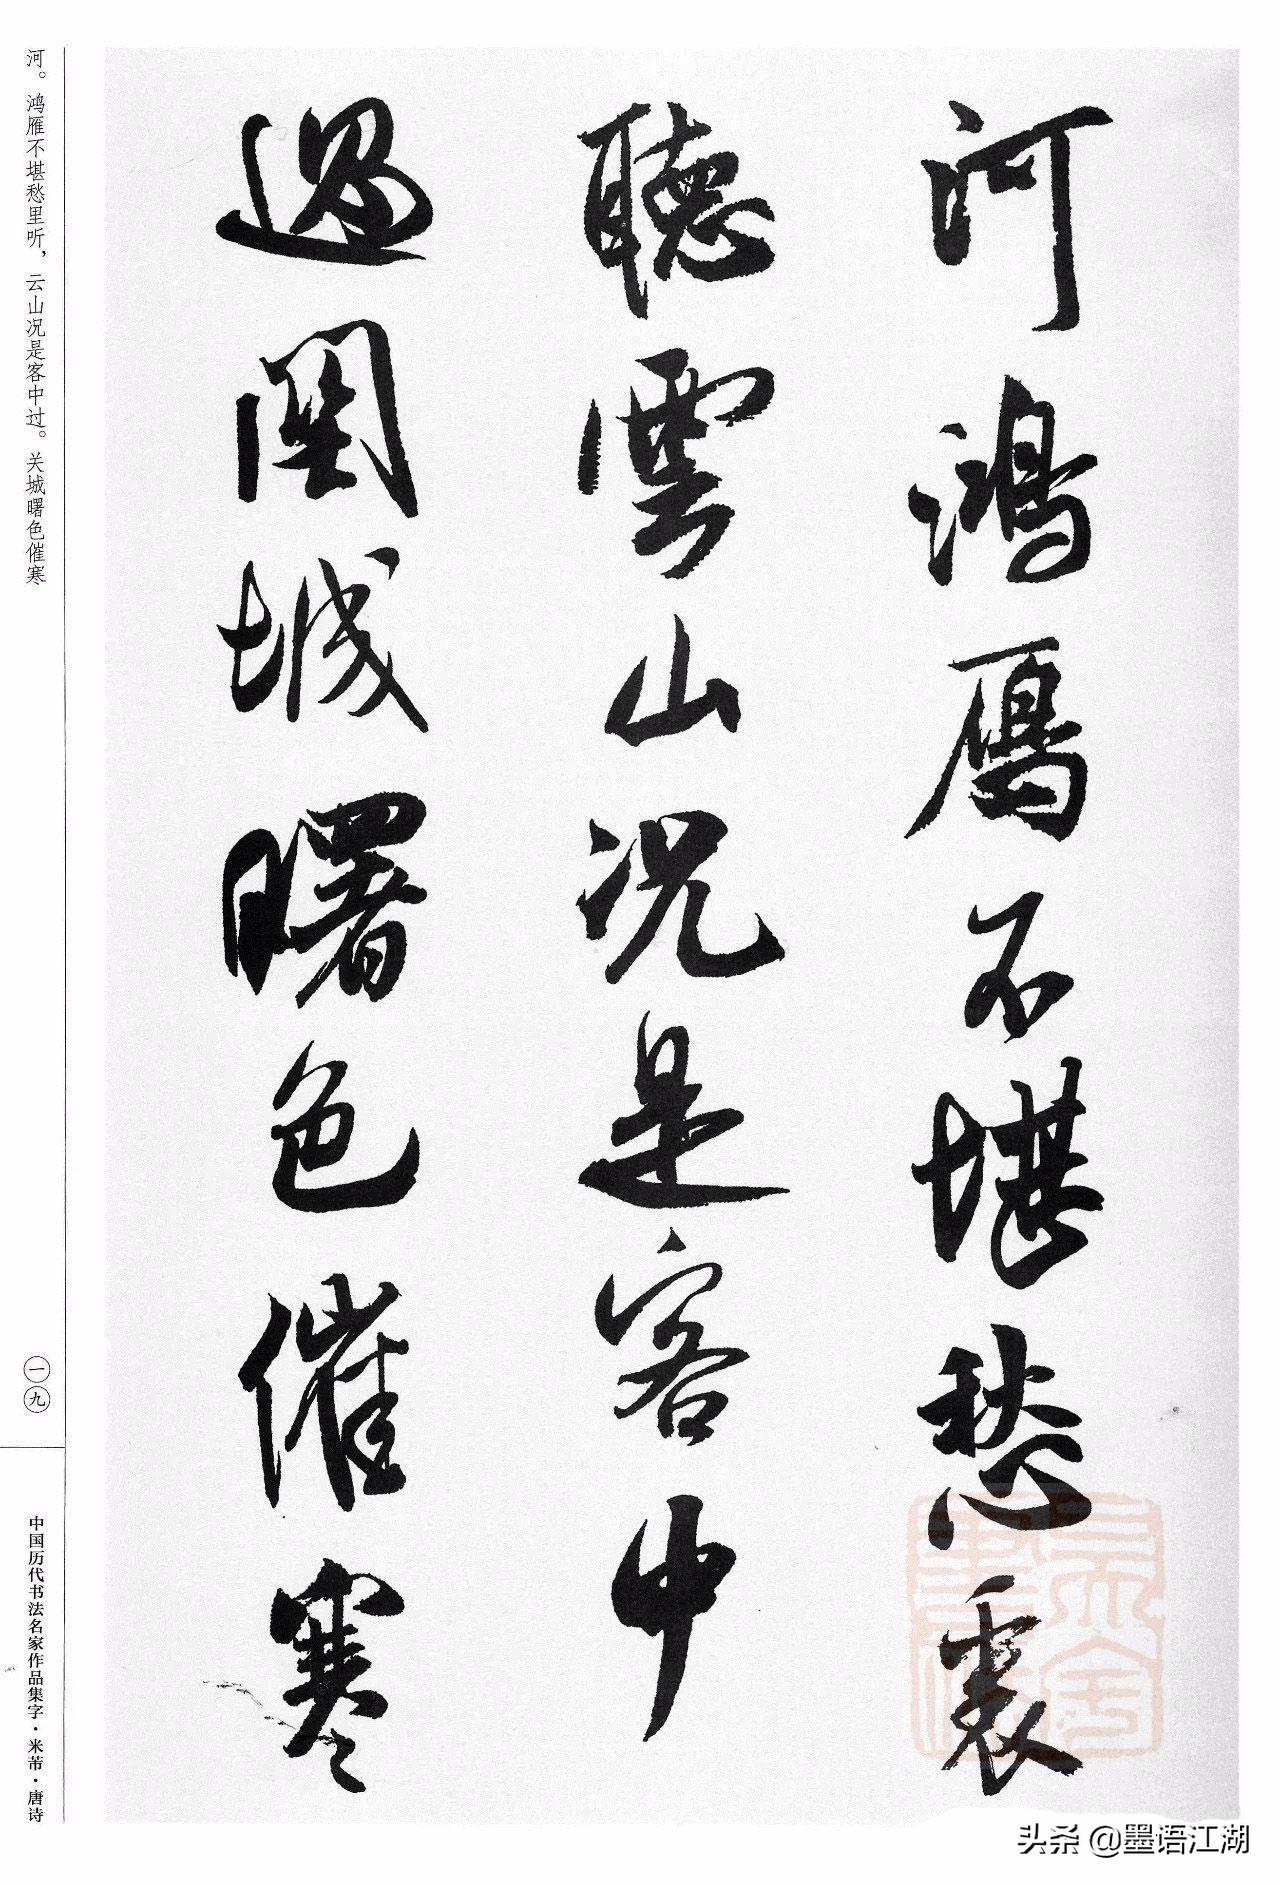 河鴻鴈不堪愁裏
聽雲山况是客中
過関城曙色催寒
河。鸿雁不堪愁里听，云山况是客中过。关城曙色催寒
一九
中国历代书法名家作品集字·米芾·唐诗
头条 @墨语江湖